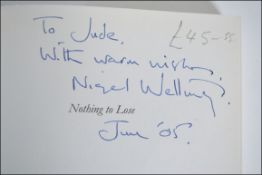 To Jude,
£45-
With warm wishes,
Nigel Wellings.
Nothing to Lose
June '05.